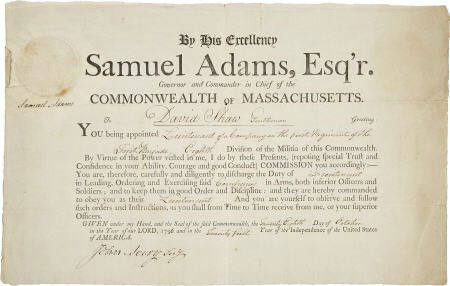 By His Excellency
Samuel Adams, Esq'r.
Governor and Commander in Chief of the
COMMONWEALTH OF MASSACHUSETTS.
Samuel Adams
To David Shaw Gentleman Greeting:
YOU being appointed Lieutenant of a Company in the first Regiment of the
First Brigade Eighth Division of the Militia of this Commonwealth.
By Virtue of the Power vested in me, I do by these Presents, (reposing special Trust and
Confidence in your Ability, Courage and good Conduct) COMMISSION you accordingly:—
You are, therefore, carefully and diligently to discharge the Duty of Lieutenant
in Leading, Ordering and Exercising said Company in Arms, both inferior Officers and
Soldiers; and to keep them in good Order and Discipline: and they are hereby commanded
to obey you as their Lieutenant And you are yourself to observe and follow
such orders and Instructions, as you shall from Time to Time receive from me, or your superior
Officers.
GIVEN under my Hand, and the Seal of the said Commonwealth, the twenty Eighth Day of October
in the Year of our LORD, 1796 and in the twenty first Year of the Independence of the United States
of AMERICA.
John Avery Secy